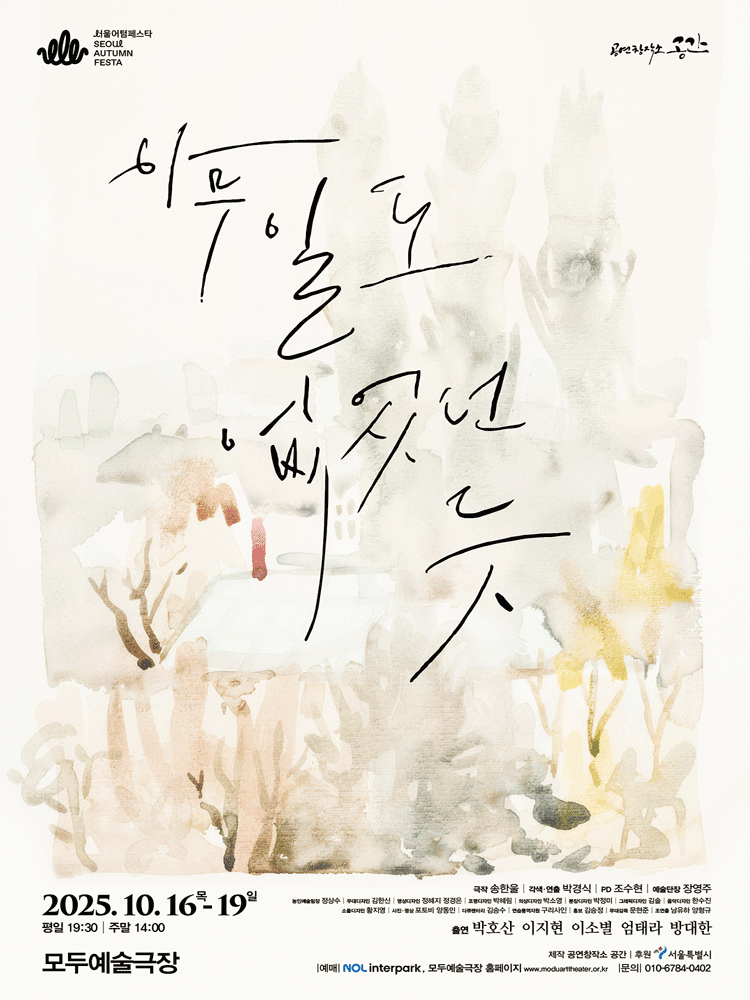 서울어텀페스타
SEOUL
AUTUMN
FESTA
공연창작소 공간
아무 일도
없었던
듯
극작 송한울 | 각색·연출 박경식 | PD 조수현 | 예술단장 장영주
농인예술팀장 정상수 | 무대디자인 김한신 | 영상디자인 정혜지 정경은 | 조명디자인 박혜림 | 의상디자인 박소영 | 분장디자인 박정미 | 그래픽디자인 김솔 | 음악디자인 한수진
소품디자인 황지영 | 사진·영상 포토비 양동민 | 다큐멘터리 김승수 | 연습통역지원 구리사인 | 홍보 김승정 | 무대감독 문현준 | 조연출 남유하 양형규
출연 박호산 이지현 이소별 엄태라 방대한
2025. 10. 16목 - 19일
평일 19:30 | 주말 14:00
모두예술극장
제작 공연창작소 공간 | 후원 서울특별시
|예매| NOL interpark, 모두예술극장 홈페이지 www.moduarttheater.or.kr |문의| 010-6784-0402